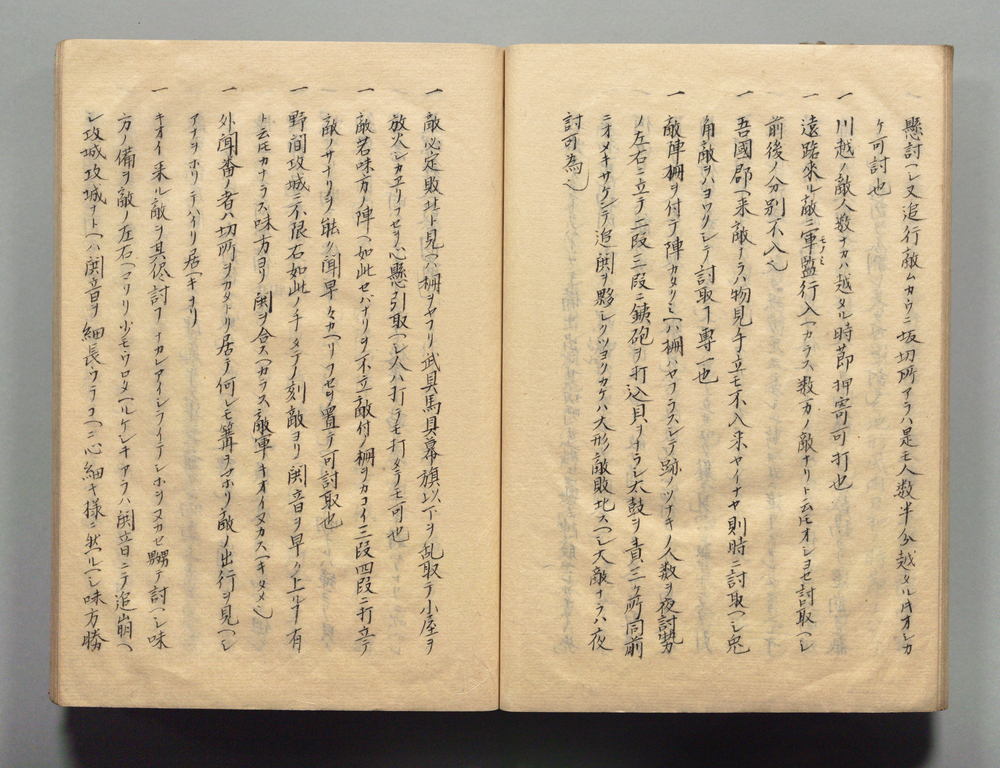 懸討ヘシ又追行敵ムカウニ坂切所アラハ是モ人数半分越タル時オシカ
ケ可討也
一 川越ノ敵人数ナカハ越タル時節押寄可打也
一 遠路来ル敵ニ軍監行入ヘカラス数万ノ敵ナリト云氏オシヨセ討取ヘシ
モノミ
前後ノ分別不入也
一 吾國郡ヘ来敵ナラハ物見手立モ不入来ヤイナヤ則時ニ討取ヘシ兎
角敵ヲハヨワクシテ討取事専一也
一 敵陣柵ヲ付テ陣カタクミヘハ柵ハヤフラスシテ跡ノツナキノ人数ヲ夜討勢
ノ左右ニ立テ二段三段ニ鉄砲ヲ打込貝ヲナラシ太鼓ヲ責三ケ所同前
ニオメキサケンテ追関ヲ夥シクツヨクカケハ大形敵敗北スヘシ大敵ナラハ夜
討可為也
一 敵必定敗北ト見ヘハ柵ヲヤフリ武具馬具幕旗以下ヲ乱取テ小屋ヲ
放火シカエリフセヲ心懸引取ヘシ火ハ打ラモ打タテモ可也
一 敵若味方ノ陣ヘ如此セバナリヲ不立敵付ノ柵ヲカコイ三段四段ニ打立テ
敵ノサナリヲ能ク聞早々カヘリフセヲ置テ可討取也
一 野間攻城ニ不限右如此ノ手タテノ刻敵ヨリ関音ヲ早ク上ル事有
ト云氏カナラス味方ヨリ関ヲ合スヘカラス敵軍キオイヌカスヘキタメ也
一 外聞番ノ者ハ切所ヲカタトリ居テ何レモ篝ヲマホリ敵ノ出行ヲ見ヘシ
アナヲホリテハイリ居ヘキナリ
一 キオイ来ル敵ヲ其侭討フナカレアイシライテシホヲヌカセ嬲テ討ヘシ味
方ノ備ヲ敵ノ左右ヘマワリ少モウロタヘルケシキアラハ関音ニテ追崩ヘ
シ攻城攻城ナトヘハ関音ヲ細長クラコヘニ心細キ様ニ然ルヘシ味方勝